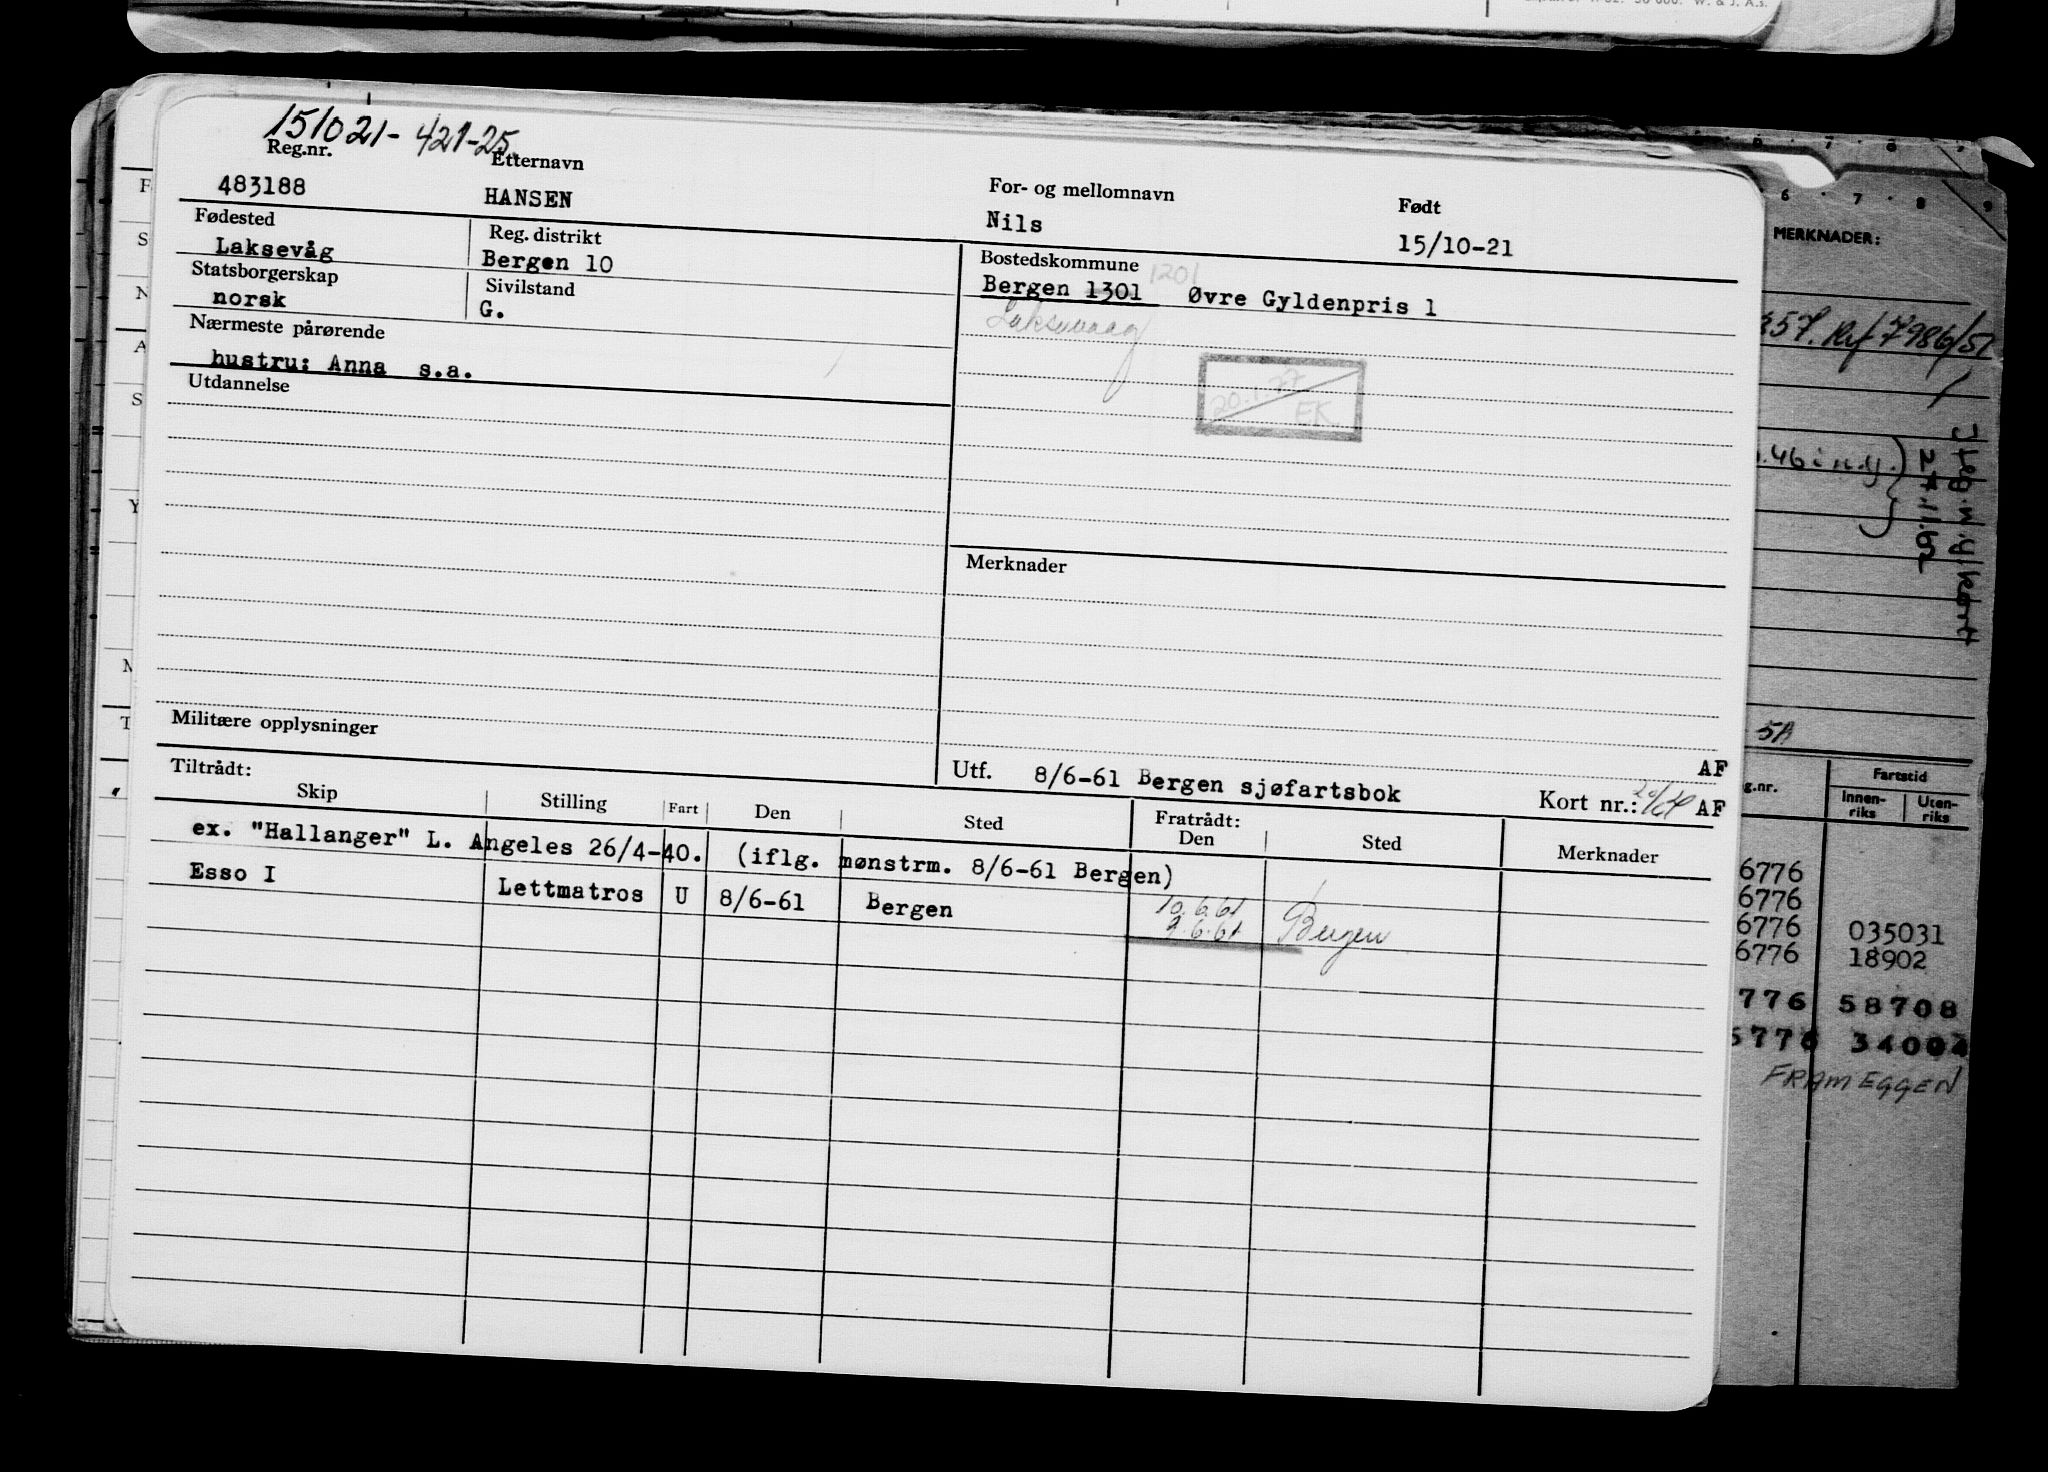 151021-421-25.
Reg.nr. Etternavn For- og mellomnavn Født
483188 HANSEN Nils 15/10-21
Fødested Reg. distrikt Bostedskommune 1201
Laksevåg Bergen 10 Bergen 1301 Øvre Gyldenpris 1
Statsborgerskap Sivilstand Laksevaag
norsk G.
Nærmeste pårørende
hustru: Anna s.a.
20.1.77
EK
Utdannelse
Merknader
Militære opplysninger
AF
Utf. 8/6-61 Bergen sjøfartsbok Kort nr.: AF
Tiltrådt: Fratrådt:
Skip Stilling Fart Den Sted Den Sted Merknader
ex. "Hallanger" L. Angeles 26/4-40. (iflg. mønstrm. 8/6-61 Bergen)
Esso I Lettmatros U 8/6-61 Bergen 10.6.61
9.6.61 Bergen
6 . 7 . 8 . 9
MERKNADER:
357. Ref 7986/51
.46 i n.y.)
27.11.62
5A
g.nr. Fartstid
Innenriks Utenriks
6776
6776
6776 035031
6776 18902
776 58708
6776 34004
FRAMEGGEN